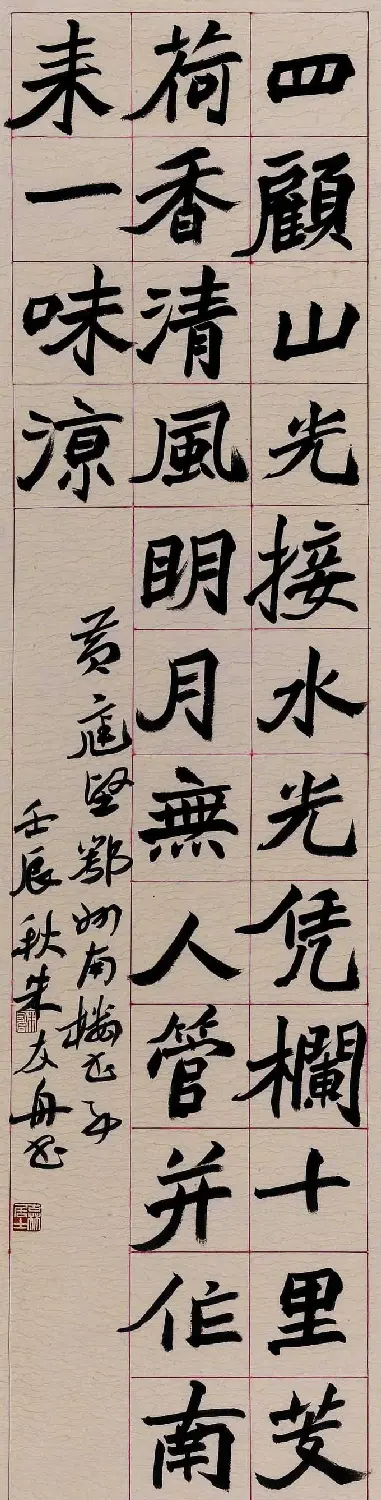 四顧山光接水光凭欄十里芰
荷香清風明月無人管并作南
来一味凉
黄庭堅鄂州南樓书事
壬辰秋朱友舟书